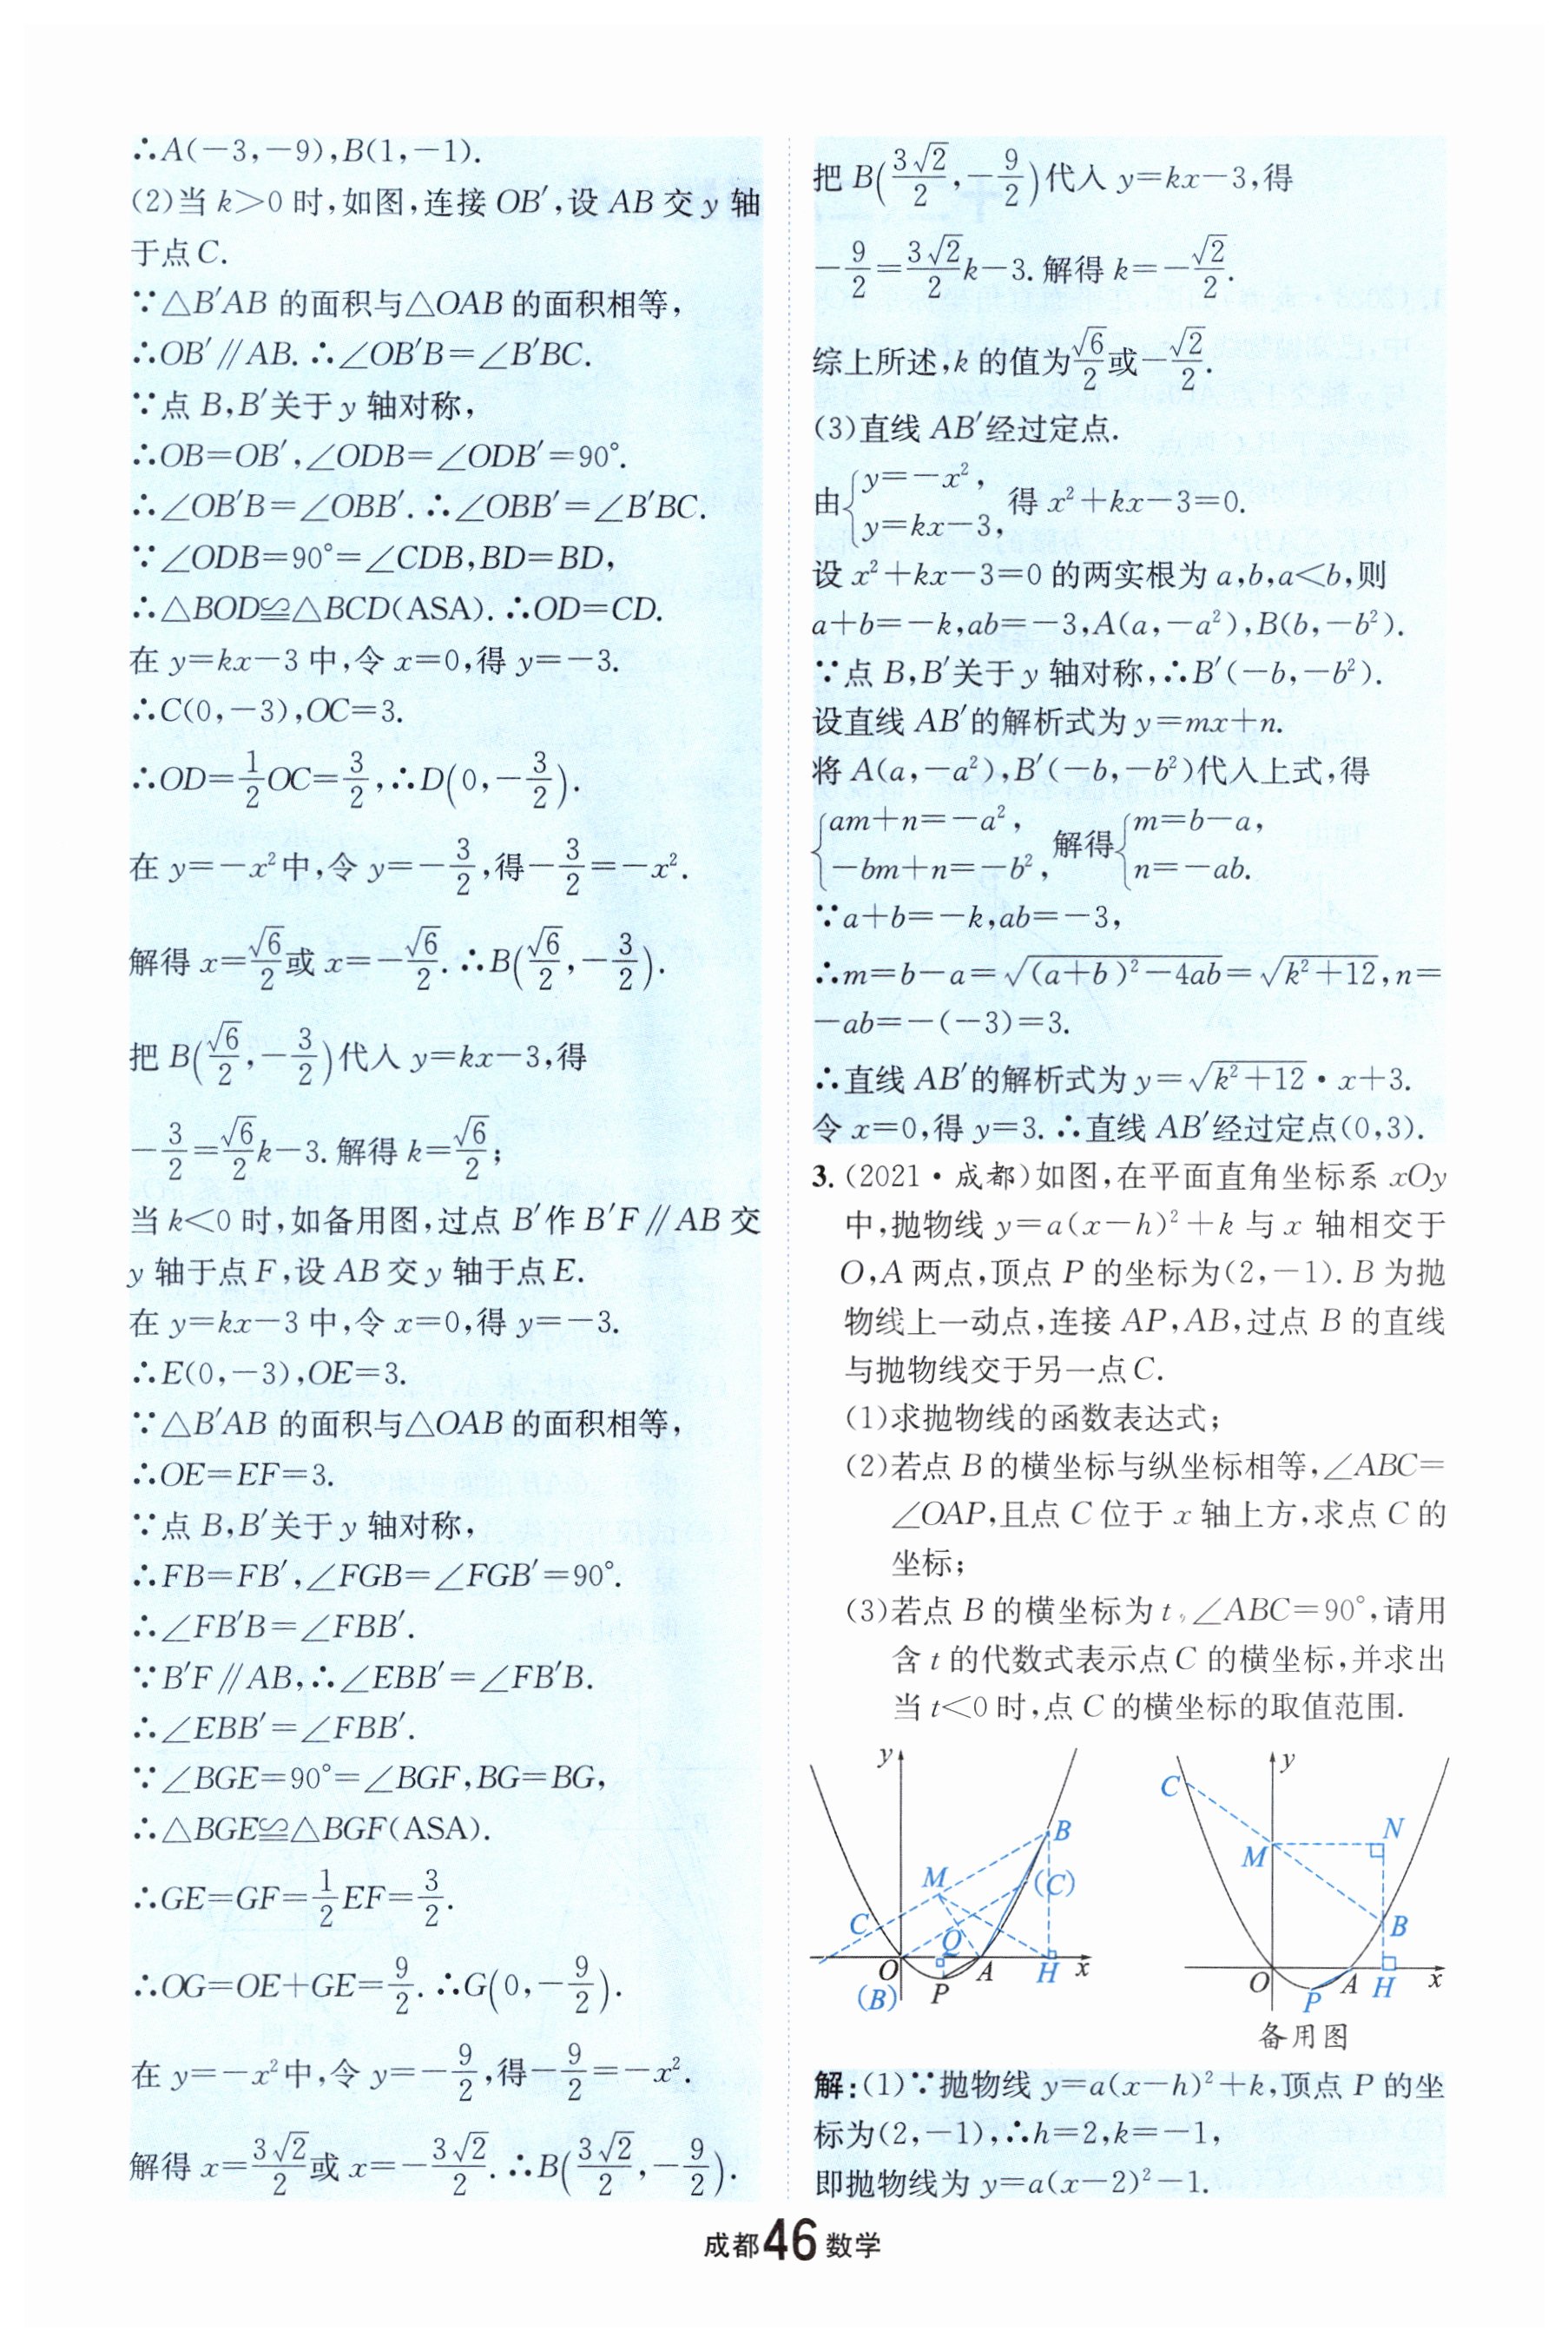 ∴A(−3,−9),B(1,−1).
(2)当 k>0 时,如图,连接 OB′,设 AB 交 y 轴
于点 C.
∵△B′AB 的面积与△OAB 的面积相等,
∴OB′∥AB. ∴∠OB′B=∠B′BC.
∵点 B,B′关于 y 轴对称,
∴OB=OB′,∠ODB=∠ODB′=90°.
∴∠OB′B=∠OBB′. ∴∠OBB′=∠B′BC.
∵∠ODB=90°=∠CDB,BD=BD,
∴△BOD≌△BCD(ASA). ∴OD=CD.
在 y=kx−3 中,令 x=0,得 y=−3.
∴C(0,−3),OC=3.
∴OD=1/2OC=3/2,∴D(0,−3/2).
在 y=−x²中,令 y=−3/2,得−3/2=−x².
解得 x=√6/2或 x=−√6/2. ∴B(√6/2,−3/2).
把 B(√6/2,−3/2)代入 y=kx−3,得
−3/2=√6/2k−3. 解得 k=√6/2;
当 k<0 时,如备用图,过点 B′作 B′F∥AB 交
y 轴于点 F,设 AB 交 y 轴于点 E.
在 y=kx−3 中,令 x=0,得 y=−3.
∴E(0,−3),OE=3.
∵△B′AB 的面积与△OAB 的面积相等,
∴OE=EF=3.
∵点 B,B′关于 y 轴对称,
∴FB=FB′,∠FGB=∠FGB′=90°.
∴∠FB′B=∠FBB′.
∵B′F∥AB,∴∠EBB′=∠FB′B.
∴∠EBB′=∠FBB′.
∵∠BGE=90°=∠BGF,BG=BG,
∴△BGE≌△BGF(ASA).
∴GE=GF=1/2EF=3/2.
∴OG=OE+GE=9/2. ∴G(0,−9/2).
在 y=−x²中,令 y=−9/2,得−9/2=−x².
解得 x=3√2/2或 x=−3√2/2. ∴B(3√2/2,−9/2).
把 B(3√2/2,−9/2)代入 y=kx−3,得
−9/2=3√2/2k−3. 解得 k=−√2/2.
综上所述,k 的值为√6/2或−√2/2.
(3)直线 AB′经过定点.
由{y=−x², y=kx−3, 得 x²+kx−3=0.
设 x²+kx−3=0 的两实根为 a,b,a<b,则
a+b=−k,ab=−3,A(a,−a²),B(b,−b²).
∵点 B,B′关于 y 轴对称,∴B′(−b,−b²).
设直线 AB′的解析式为 y=mx+n.
将 A(a,−a²),B′(−b,−b²)代入上式,得
{am+n=−a², −bm+n=−b², 解得{m=b−a, n=−ab.
∵a+b=−k,ab=−3,
∴m=b−a=√((a+b)²−4ab)=√(k²+12),n=
−ab=−(−3)=3.
∴直线 AB′的解析式为 y=√(k²+12)·x+3.
令 x=0,得 y=3. ∴直线 AB′经过定点(0,3).
3. (2021·成都)如图,在平面直角坐标系 xOy
中,抛物线 y=a(x−h)²+k 与 x 轴相交于
O,A 两点,顶点 P 的坐标为(2,−1). B 为抛
物线上一动点,连接 AP,AB,过点 B 的直线
与抛物线交于另一点 C.
(1)求抛物线的函数表达式;
(2)若点 B 的横坐标与纵坐标相等,∠ABC=
∠OAP,且点 C 位于 x 轴上方,求点 C 的
坐标;
(3)若点 B 的横坐标为 t,∠ABC=90°,请用
含 t 的代数式表示点 C 的横坐标,并求出
当 t<0 时,点 C 的横坐标的取值范围.
y
B
M
(C)
C
Q
O
A
H
x
(B)
P
y
C
N
M
B
O
A
H
x
P
备用图
解:(1)∵抛物线 y=a(x−h)²+k,顶点 P 的坐
标为(2,−1),∴h=2,k=−1,
即抛物线为 y=a(x−2)²−1.
成都46数学